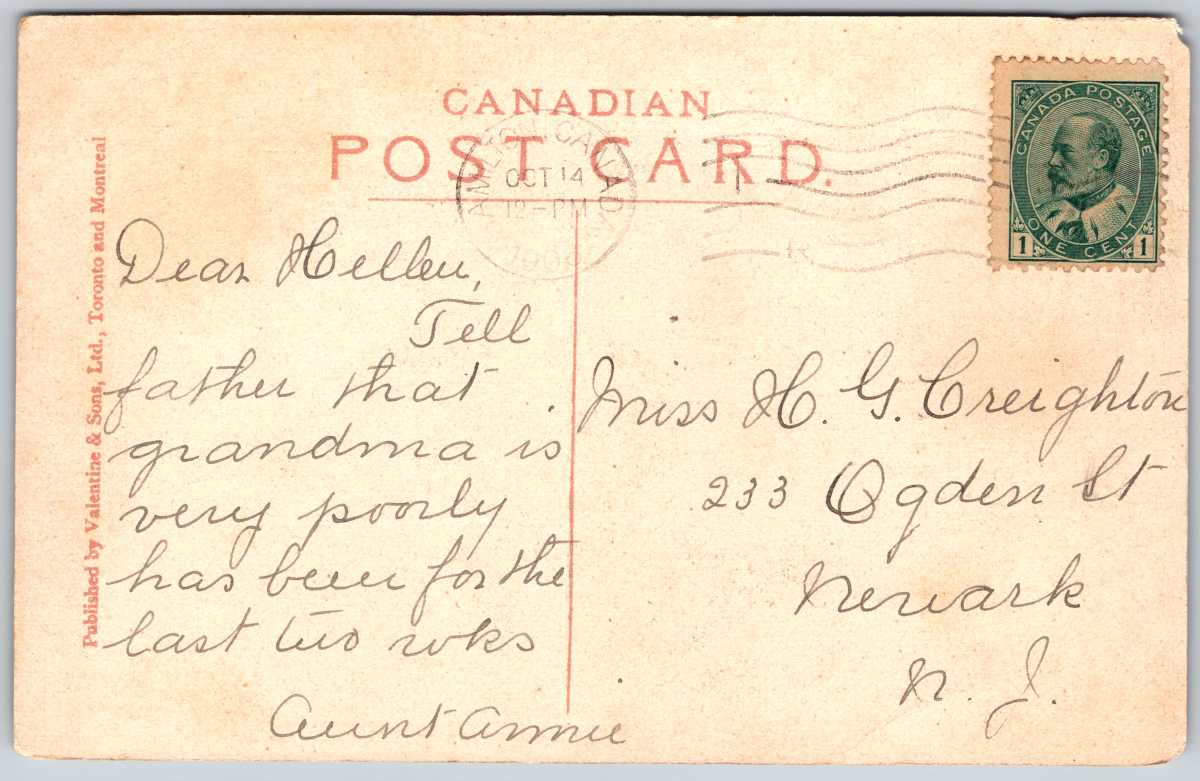 CANADIAN
POST CARD.
HAMILTON, CANADA
OCT 14
12-PM
CANADA POSTAGE
1 ONE CENT 1
Published by Valentine & Sons, Ltd., Toronto and Montreal
Dear Hellen,
Tell
father that
grandma is
very poorly
has been for the
last two wks
Aunt Annie
Miss H. G. Creighton
233 Ogden St
Newark
N. J.